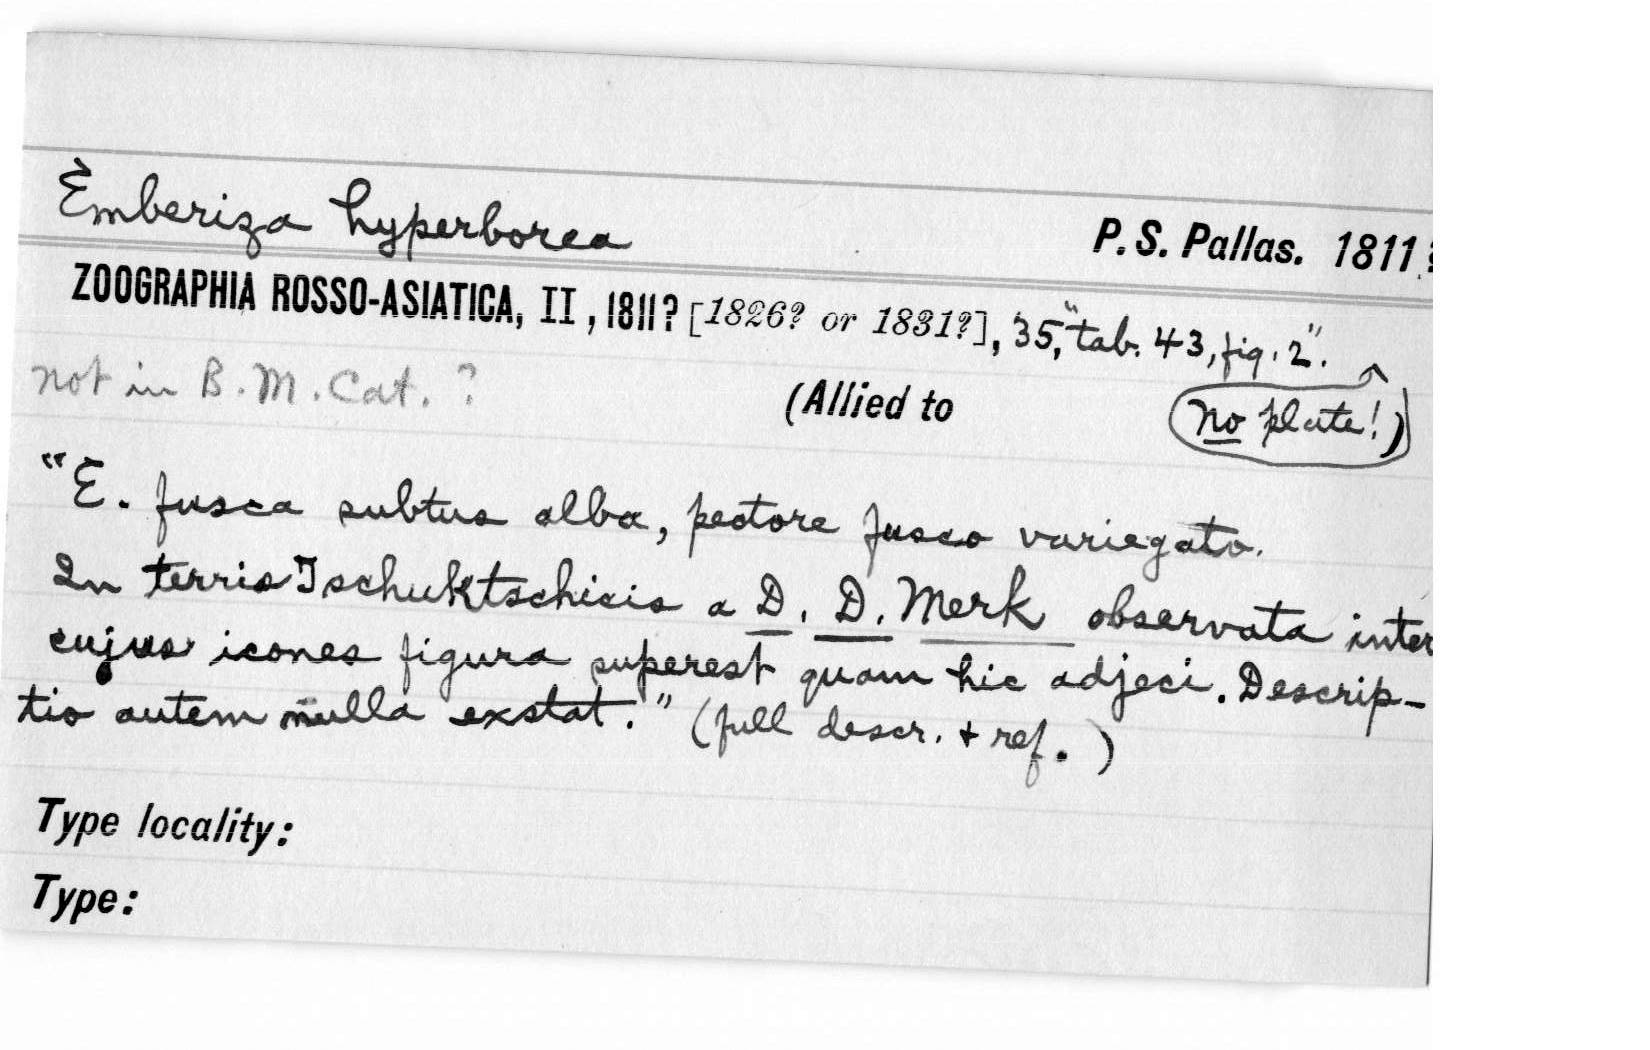 Emberiza hyperborea
P. S. Pallas. 1811?
ZOOGRAPHIA ROSSO-ASIATICA, II, 1811? [1826? or 1831?], 35, "tab. 43, fig. 2".
not in B.M. Cat. ?
(Allied to
No plate!)
"E. fusca subtus alba, pectore fusco variegato.
In terris Tschuktschicis a D. D. Merk observata inter
cujus icones figura superest quam hic adjeci. Descrip-
tio autem nulla exstat." (full descr. + ref.)
Type locality:
Type: